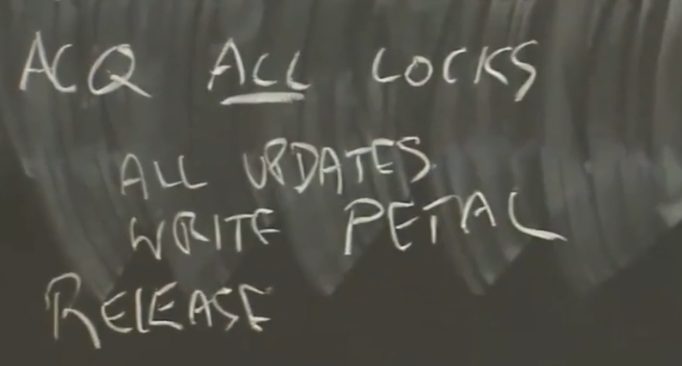 ACQ ALL LOCKS
ALL UPDATES
WRITE PETAL
RELEASE